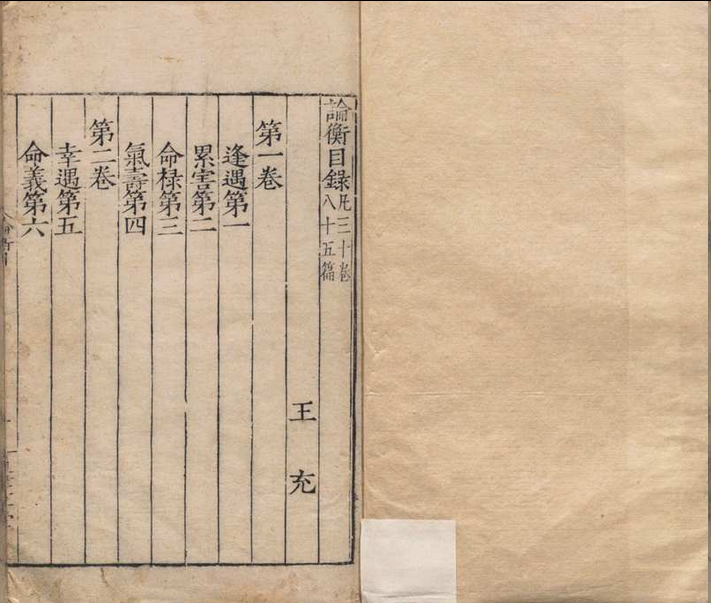 論衡目錄凡三十卷八十五篇
王充
第一卷
逢遇第一
累害第二
命祿第三
氣壽第四
第二卷
幸遇第五
命義第六